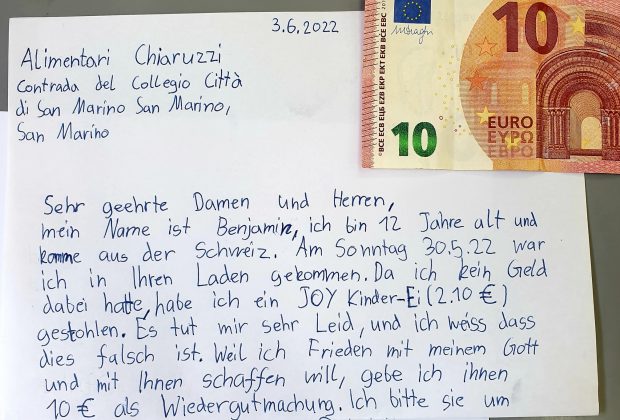 3.6.2022
Alimentari Chiaruzzi
Contrada del Collegio Città
di San Marino San Marino,
San Marino
10
EURO
ΕΥΡΩ
ЕВРО
10
©BCE ECB ЕЦБ EZB EKP EKT EKB BCE EBC
Sehr geehrte Damen und Herren,
mein Name ist Benjamin, ich bin 12 Jahre alt und
komme aus der Schweiz. Am Sonntag 30.5.22 war
ich in Ihren Laden gekommen. Da ich kein Geld
dabei hatte, habe ich ein JOY Kinder-Ei (2.10 €)
gestohlen. Es tut mir sehr Leid, und ich weiss dass
dies falsch ist. Weil ich Frieden mit meinem Gott
und mit Ihnen schaffen will, gebe ich ihnen
10 € als Wiedergutmachung. Ich bitte sie um